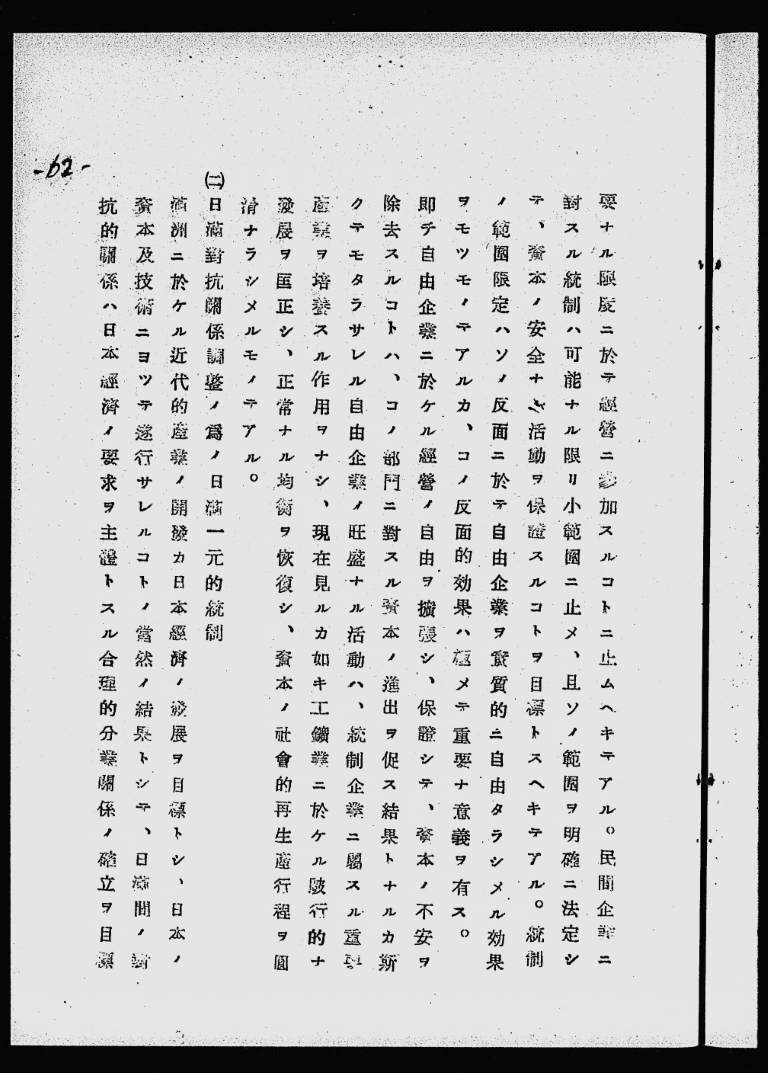 -62-
要ナル限度ニ於テ經營ニ參加スルコトニ止ムヘキテアル。民間企業ニ
對スル統制ハ可能ナル限リ小範圍ニ止メ、且ソノ範圍ヲ明確ニ法定シ
テ、資本ノ安全ナル活動ヲ保證スルコトヲ目標トスヘキテアル。統制
ノ範圍限定ハソノ反面ニ於テ自由企業ヲ實質的ニ自由タラシメル効果
ヲモツモノテアルカ、コノ反面的効果ハ極メテ重要ナ意義ヲ有ス。
即チ自由企業ニ於ケル經營ノ自由ヲ擴張シ、保證シテ、資本ノ不安ヲ
除去スルコトハ、コノ部門ニ對スル資本ノ進出ヲ促ス結果トナルカ斯
クテモタラサレル自由企業ノ旺盛ナル活動ハ、統制企業ニ屬スル重要
產業ヲ培養スル作用ヲナシ、現在見ルカ如キ工鑛業ニ於ケル跛行的ナ
發展ヲ匡正シ、正常ナル均衡ヲ恢復シ、資本ノ社會的再生產行程ヲ圓
滑ナラシメルモノテアル。
㈡日滿對抗關係調整ノ爲ノ日滿一元的統制
滿洲ニ於ケル近代的產業ノ開發カ日本經濟ノ發展ヲ目標トシ、日本ノ
資本及技術ニヨツテ遂行サレルコトノ當然ノ結果トシテ、日滿間ノ對
抗的關係ハ日本經濟ノ要求ヲ主體トスル合理的分業關係ノ確立ヲ目標